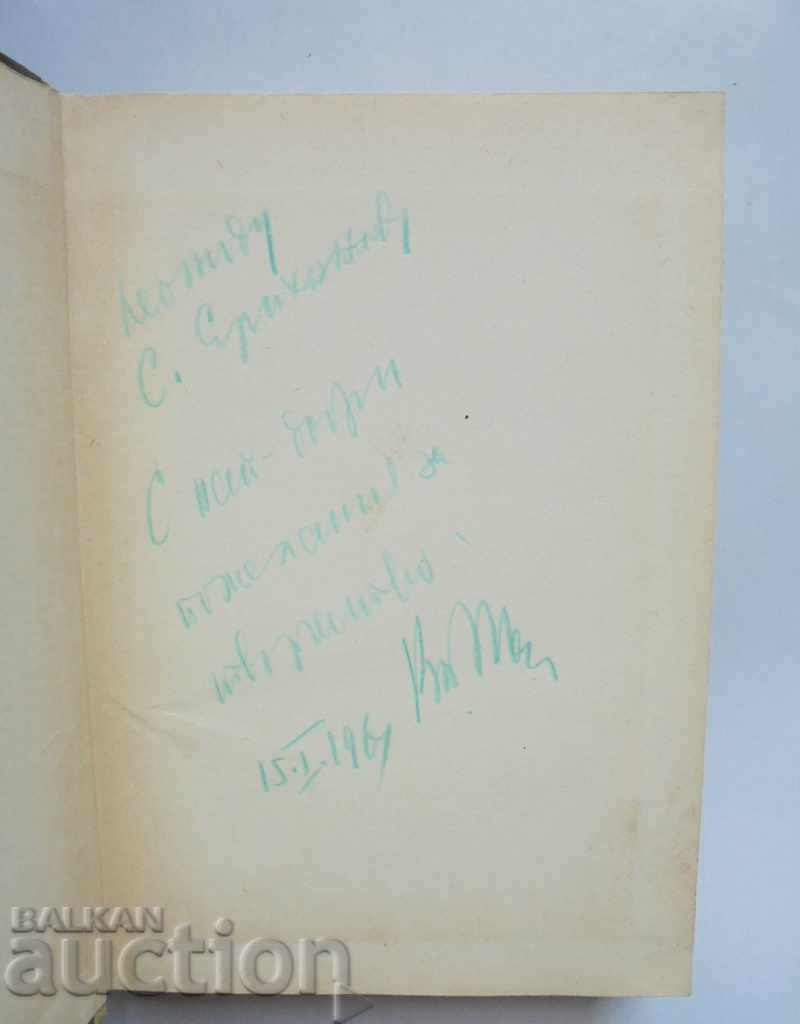 Леониду
С.
С най-добри
пожелания за
творчество.
15.I.1961
BALKAN
auction